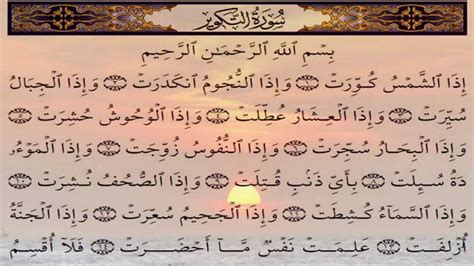 سُورَةُ التَّكْوِيرِ
بِسْمِ ٱللَّهِ ٱلرَّحْمَـٰنِ ٱلرَّحِيمِ
إِذَا ٱلشَّمْسُ كُوِّرَتْ ١ وَإِذَا ٱلنُّجُومُ ٱنكَدَرَتْ ٢ وَإِذَا ٱلْجِبَالُ
سُيِّرَتْ ٣ وَإِذَا ٱلْعِشَارُ عُطِّلَتْ ٤ وَإِذَا ٱلْوُحُوشُ حُشِرَتْ ٥
وَإِذَا ٱلْبِحَارُ سُجِّرَتْ ٦ وَإِذَا ٱلنُّفُوسُ زُوِّجَتْ ٧ وَإِذَا ٱلْمَوْءُۥ
دَةُ سُئِلَتْ ٨ بِأَيِّ ذَنۢبٍ قُتِلَتْ ٩ وَإِذَا ٱلصُّحُفُ نُشِرَتْ ١٠
وَإِذَا ٱلسَّمَآءُ كُشِطَتْ ١١ وَإِذَا ٱلْجَحِيمُ سُعِّرَتْ ١٢ وَإِذَا ٱلْجَنَّةُ
أُزْلِفَتْ ١٣ عَلِمَتْ نَفْسٌ مَّآ أَحْضَرَتْ ١٤ فَلَآ أُقْسِمُ